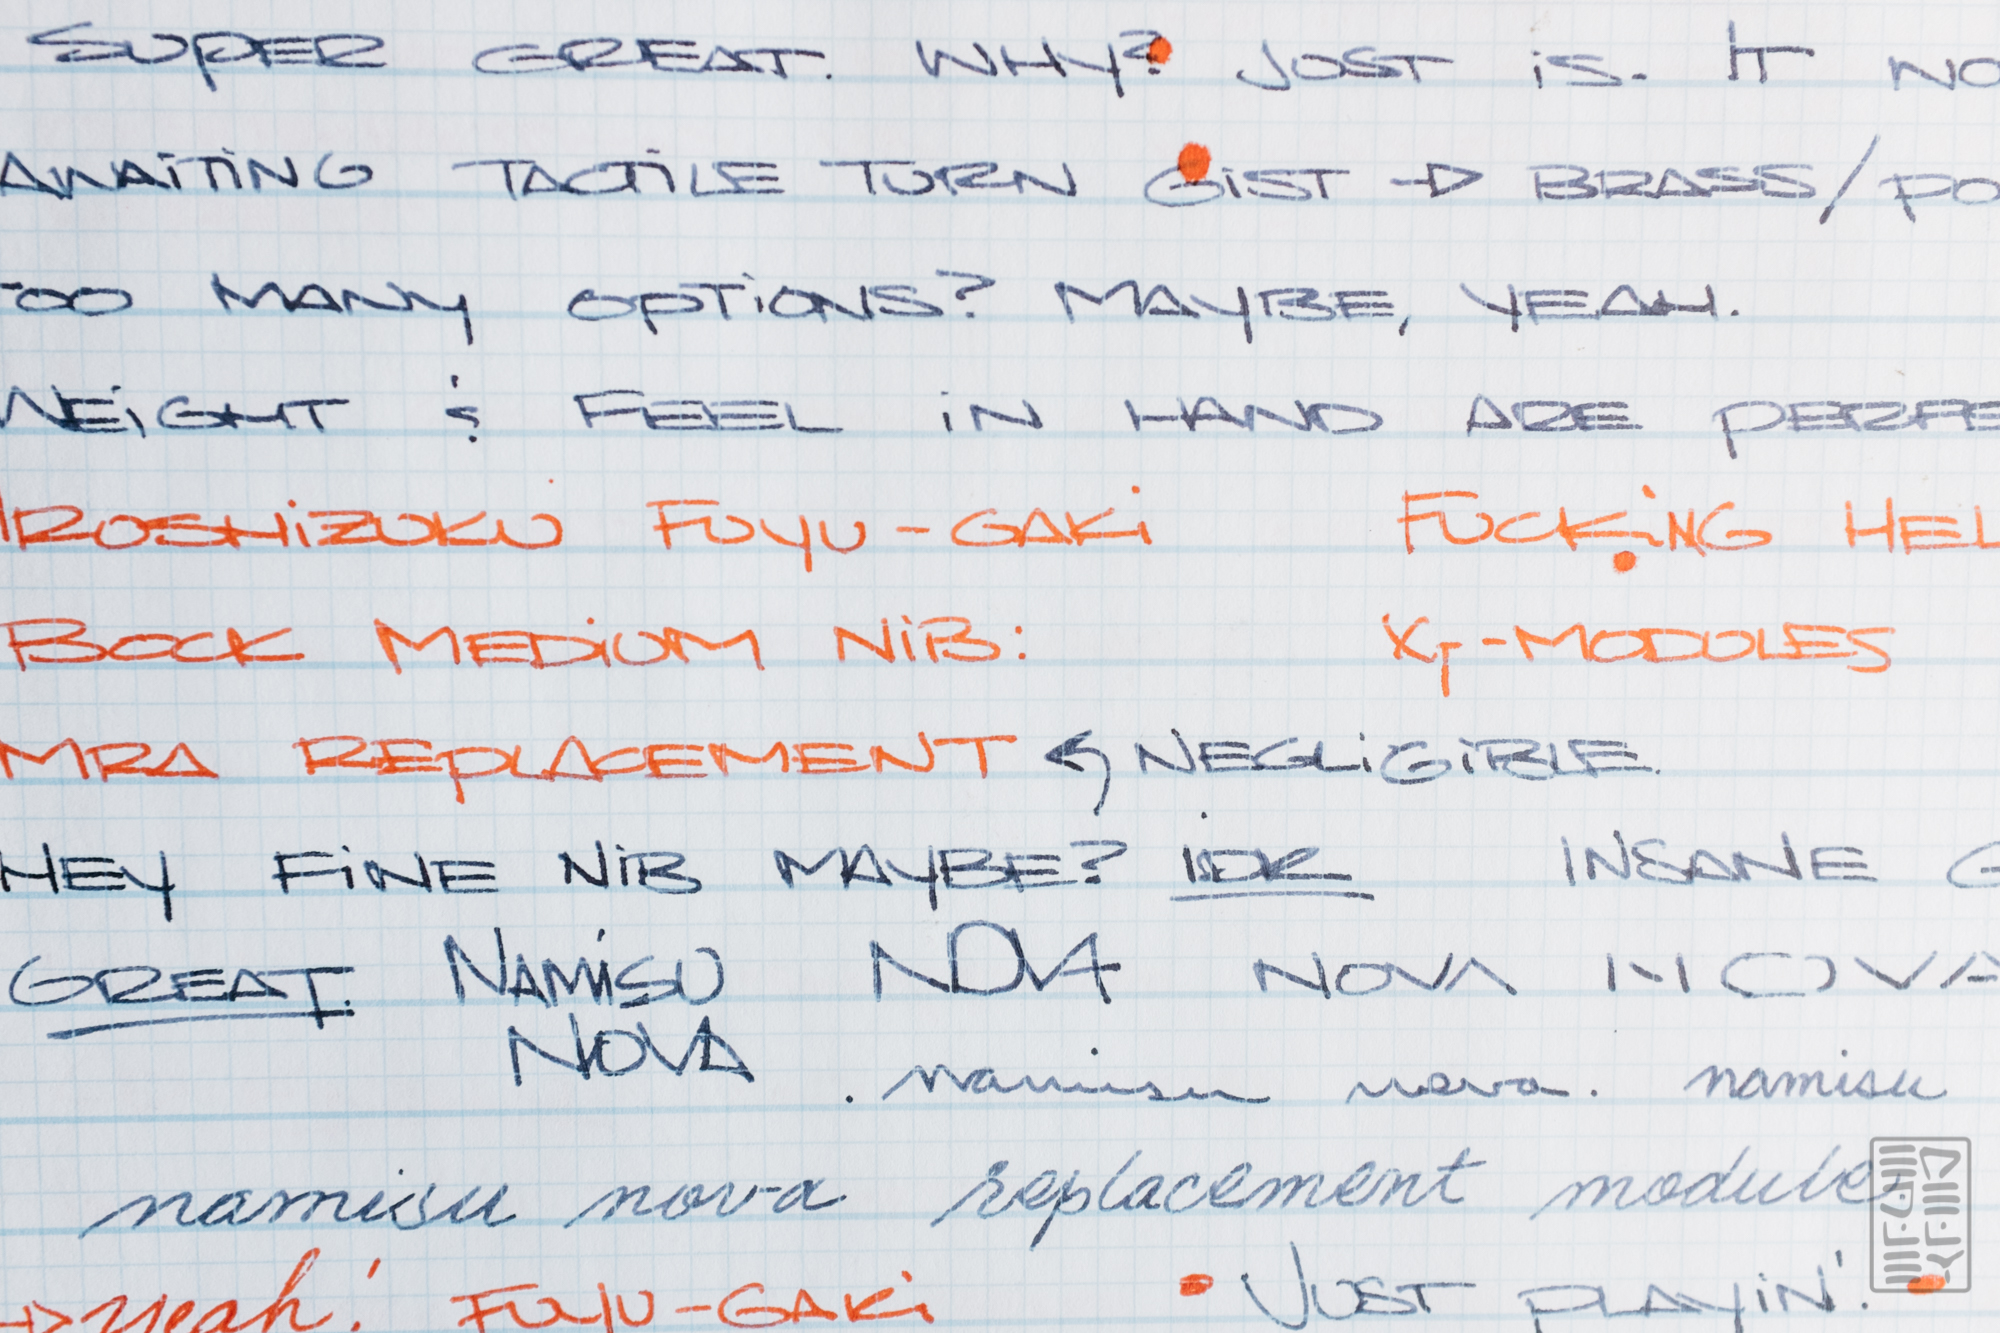 SUPER GREAT. WHY? JUST IS. IT NO
AWAITING TACTILE TURN GIST → BRASS/PO
TOO MANY OPTIONS? MAYBE, YEAH.
WEIGHT & FEEL IN HAND ARE PERFE
IROSHIZUKU FUYU-GAKI FUCKING HEL
BOCK MEDIUM NIB: XT-MODULES
MRA REPLACEMENT ↰ NEGLIGIBLE.
HEY FINE NIB MAYBE? IDK INSANE G
GREAT. NAMISU NOVA NOVA NOVA
NOVA . namisu nova. namisu
namisu nova replacement module
→ yeah! FUYU-GAKI • JUST PLAYIN'. •